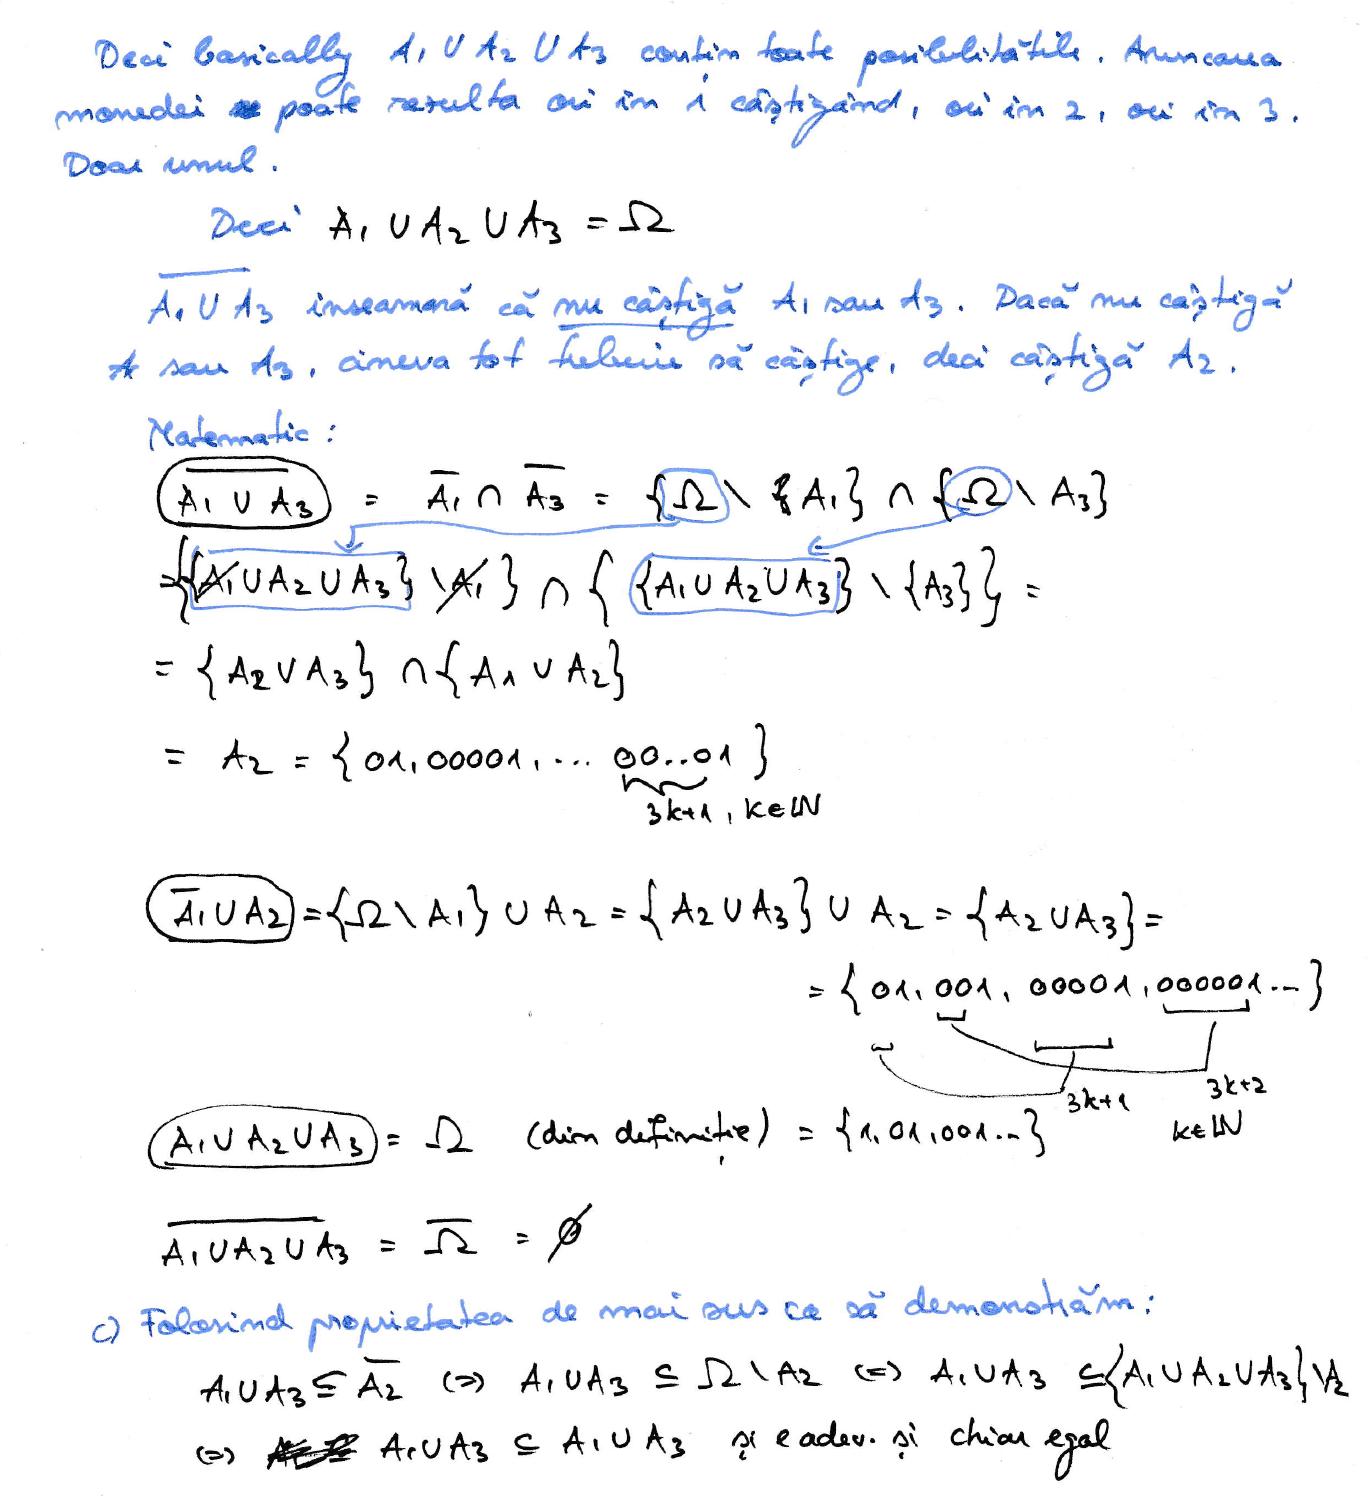 Deci basically A₁ ∪ A₂ ∪ A₃ conțin toate posibilitățile. Aruncarea
monedei poate rezulta ori în 1 câștigând, ori în 2, ori în 3.
Doar unul.
Deci A₁ ∪ A₂ ∪ A₃ = Ω
$\overline{A_1 ∪ A_3}$ inseamană că nu câștigă A₁ sau A₃. Dacă nu câștigă
A sau A₃, cineva tot trebuie să câștige, deci câștigă A₂.
Matematic:
$\overline{A_1 ∪ A_3}$ = $\overline{A_1}$ ∩ $\overline{A_3}$ = {Ω \ {A₁} ∩ {Ω \ A₃}
={{A₁ ∪ A₂ ∪ A₃} \ A₁} ∩ { {A₁ ∪ A₂ ∪ A₃} \ {A₃}} =
= {A₂ ∪ A₃} ∩ {A₁ ∪ A₂}
= A₂ = {01, 00001, ... 00..01}
3k+1, k∈ℕ
$\overline{A_1}$ ∪ A₂ = {Ω \ A₁} ∪ A₂ = {A₂ ∪ A₃} ∪ A₂ = {A₂ ∪ A₃} =
= {01, 001, 00001, 000001...}
3k+1 3k+2
A₁ ∪ A₂ ∪ A₃ = Ω (din definiție) = {1, 01, 001...} k∈ℕ
$\overline{A_1 ∪ A_2 ∪ A_3}$ = $\overline{Ω}$ = ∅
c) Folosind proprietatea de mai sus ca să demonstrăm:
A₁ ∪ A₃ ⊆ $\overline{A_2}$ (=) A₁ ∪ A₃ ⊆ Ω \ A₂ (=) A₁ ∪ A₃ ⊆ {A₁ ∪ A₂ ∪ A₃} \ A₂
(=) A₁ ∪ A₃ ⊆ A₁ ∪ A₃ și e adev. și chiar egal